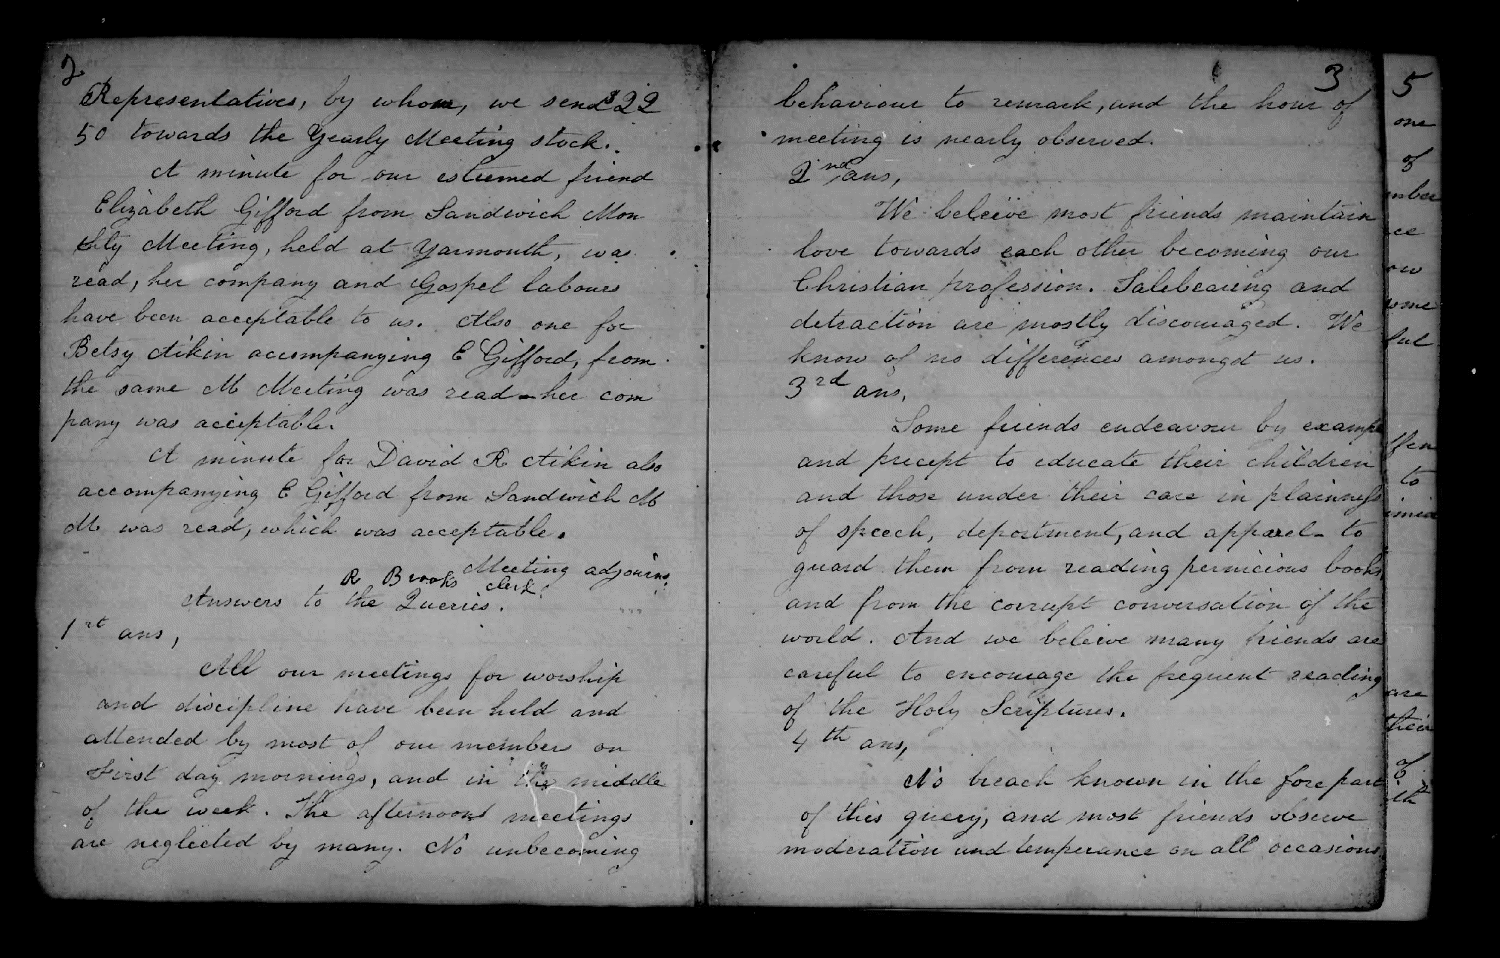 2
Representatives, by whom, we send $22
50 towards the Yearly Meeting stock.
A minute for our esteemed friend
Elizabeth Gifford from Sandwich Mon
thly Meeting, held at Yarmouth, was
read, her company and Gospel labours
have been acceptable to us. Also one for
Betsy Aikin accompanying E Gifford, from
the same M Meeting was read - her com
pany was acceptable.
A minute for David R Aikin also
accompanying E Gifford from Sandwich M
M was read, which was acceptable.
Meeting adjourns.
R Brooks clerk.
Answers to the Queries.
1st ans,
All our meetings for worship
and discipline have been held and
attended by most of our members on
First day mornings, and in the middle
of the week. The afternoons meetings
are neglected by many. No unbecoming
3
behaviour to remark, and the hour of
meeting is nearly observed.
2nd ans,
We beleive most friends maintain
love towards each other becoming our
Christian profession. Talebearing and
detraction are mostly discouraged. We
know of no differences amongst us.
3rd ans,
Some friends endeavour by example
and precept to educate their children
and those under their care in plainness
of speech, deportment, and apparel - to
guard them from reading pernicious books
and from the corrupt conversation of the
world. And we beleive many friends are
careful to encourage the frequent reading
of the Holy Scriptures.
4th ans,
No breach known in the fore part
of this query, and most friends observe
moderation and temperance on all occasions
5
one
of
mber
ce
ow
ome
ful
ffen
to
are
their
of
th